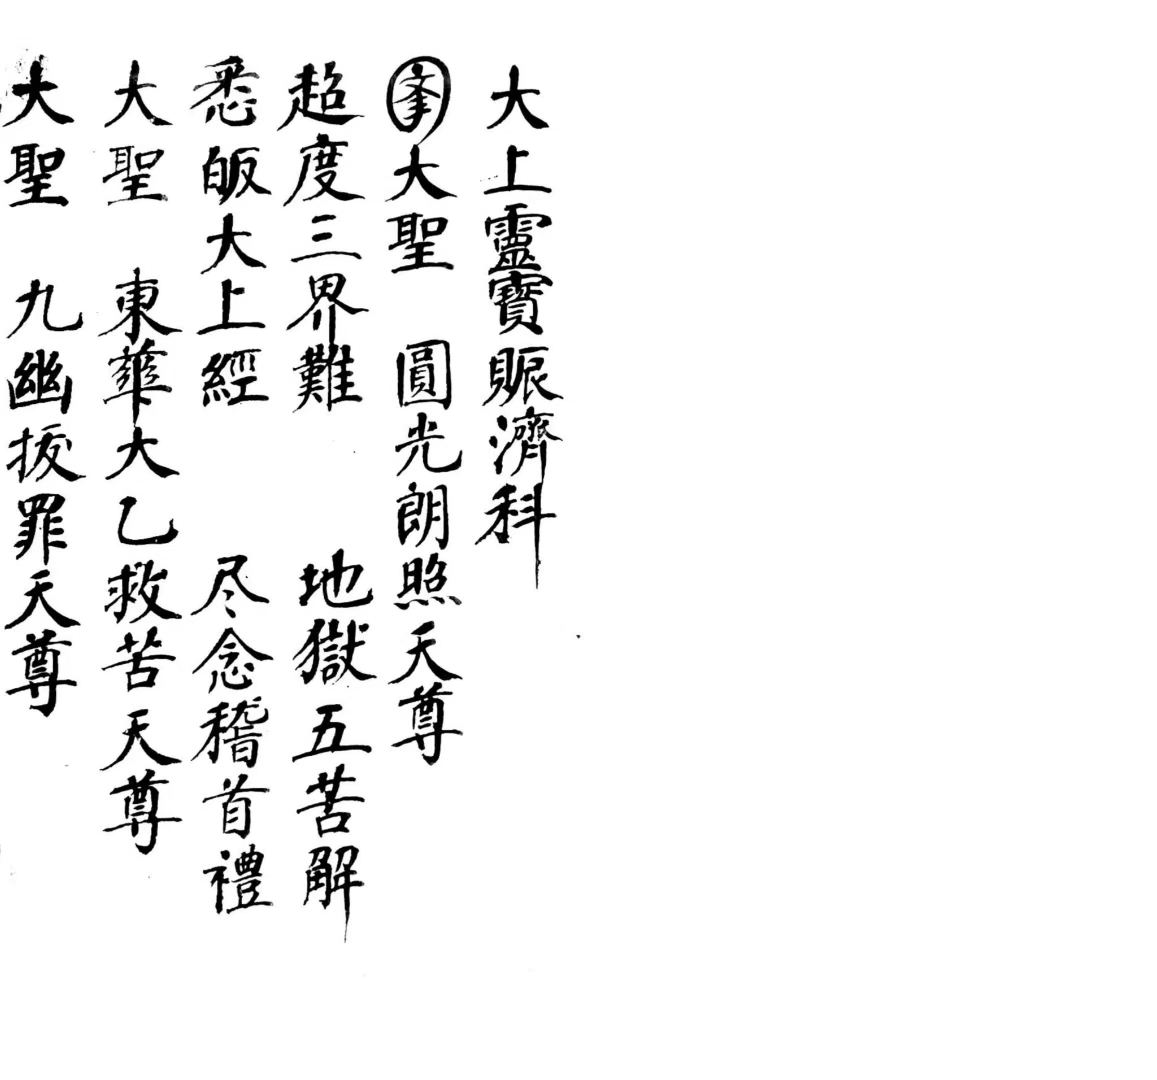 大上靈寶賑濟科
大聖 圓光朗照天尊
超度三界難 地獄五苦解
悉皈大上經 尽念稽首禮
大聖 東華大乙救苦天尊
大聖 九幽拔罪天尊